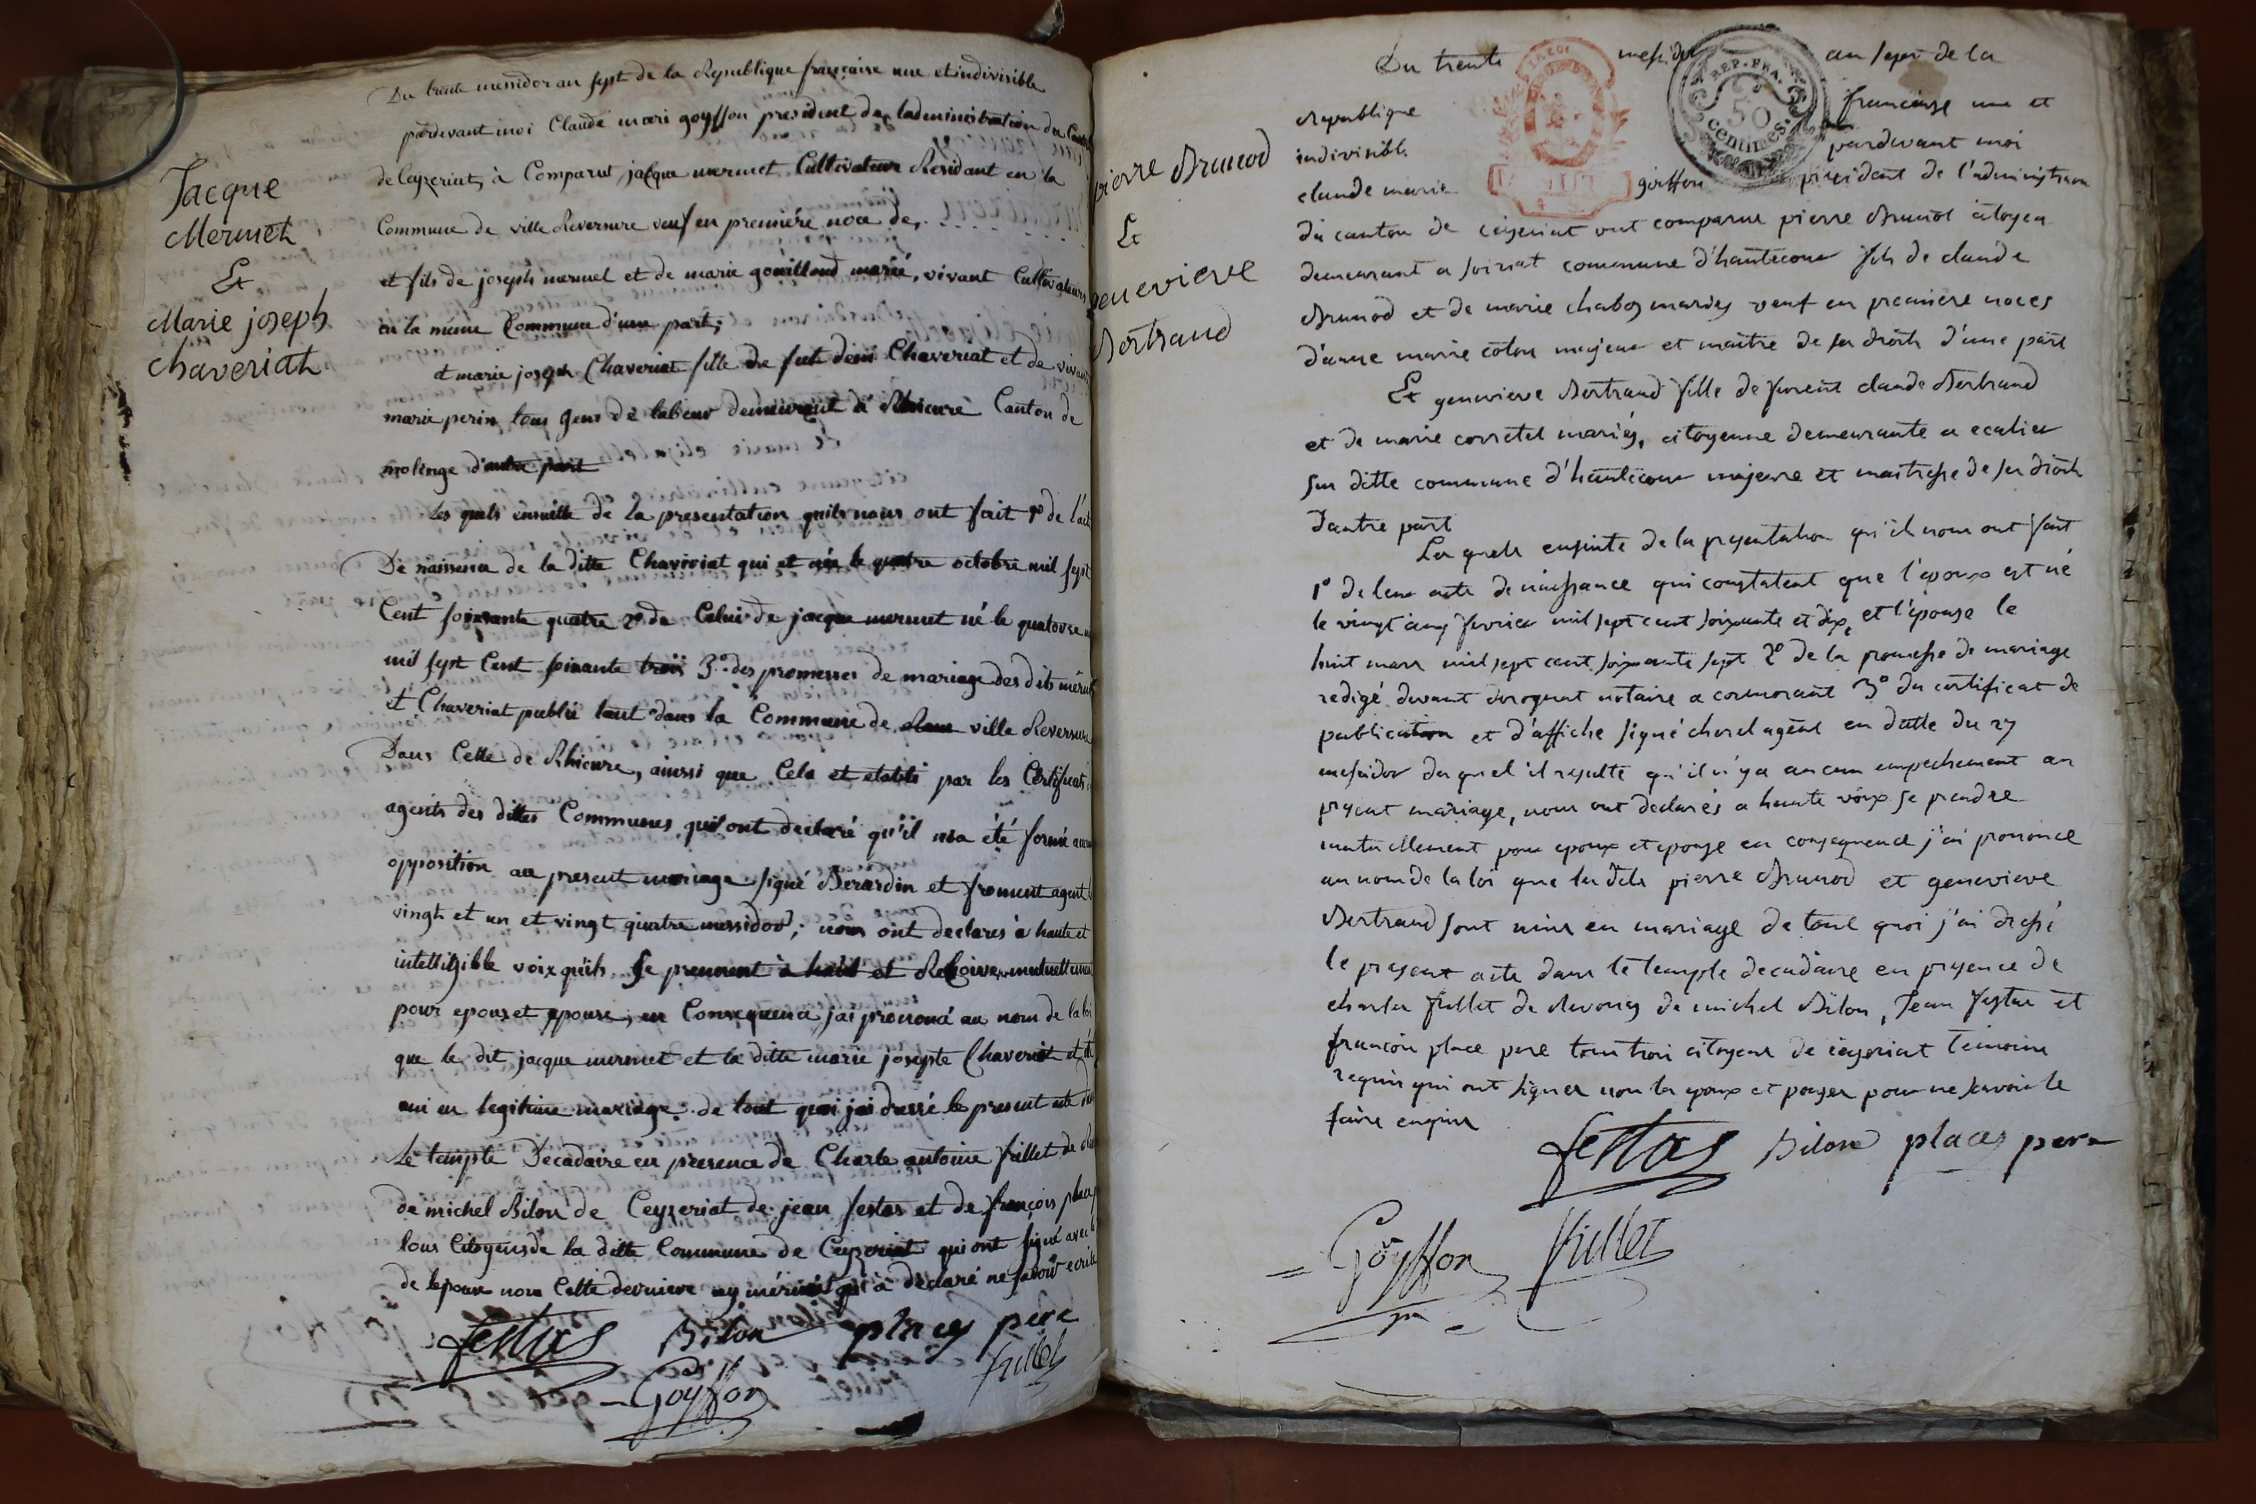 Jacque
Mermet
Et
Marie joseph
Chaveriat
Du trente messidor an sept de la Republique française une et indivisible
pardevant moi Claude mari goyffon president de ladministration du Canton
de Ceyzeriat, à Comparut jacque mermet Cultivateur Residant en la
Commune de ville Reversure veuf en premiére noce de
et fils de joseph mermet et de marie gouilloud marié, vivant Cultivateurs
en la même Commune d'une part;
et marie joseph Chaveriat fille de fut deni Chaveriat et de vivante
marie perin tous gens de labeur demeurent à Rhicure Canton de
molinge d'autre part
Les quels ensuitte de la presentation quils nous ont fait 1º de l'acte
De naissence de la ditte Chaviriat qui et née le quatre octobre mil sept
Cent soixante quatre 2º de Celui de jacque mermet né le quatorze
mil sept Cent soixante trois 3º des promesses de mariage des dits
et Chaveriat publié tant dans la Commune de ville Reversure
Dans Celle de Rhicure, ainssi que Cela et etabli par les Certificats
agents des dittes Communes qui ont declaré qu'il na été formé
opposition au present mariage signé Berardin et froment agent
vingt et un et vingt quatre messidor; nous ont declares à haute et
intelligible voix quils se prennent à et Reçoive mutuellement
pour epoux et epouse, en Consequence jai prononcé au nom de la loi
que le dit jacque mermet et la ditte marie josepte Chaveriat
uni en legitime mariage de tout quoi jai dressé le present acte
Le temple Decadaire en presence de Charle antoine frillet de
de michel Bilon de Ceyzeriat de jean festas et de françois place
tous Citoyens de la ditte Commune de Ceyzeriat qui ont signé
de lepoux non Cette derniere ny qui à declaré ne savoir ecrire
festas Bilon places pere
Goyffon frillet
pierre Brunod
Et
genevieve
Bertrand
REP. FRA.
50
centimes.
Du trente messidor an sept de la
republique francaise une et
indivisible pardevant moi
claude marie goiffon president de l'administration
du canton de ceyzeriat ont comparu pierre Brunod citoyen
demeurant a soirsat commune d'hautecour fils de claude
Brunod et de marie chaboz mariés veuf en premiere noces
d'anne marie colon majeur et maitre de ses droits d'une part
Et genevieve Bertrand fille de claude Bertrand
et de marie corretel mariés, citoyenne demeurante a
sus ditte commune d'hautecour majeure et maitresse de ses droits
d'autre part
Les quels ensuite de la presentation qu'il nous ont fait
1º de leur acte de naissance qui constatent que l'epoux est né
le vingt cinq fevrier mil sept cent soixante et dix, et l'epouse le
huit mars mil sept cent soixante sept 2º de la promesse de mariage
redigé devant notaire a cormorant 3º du certificat de
publication et d'affiche signé chorel agent en datte du 27
messidor du quel il resulte qu'il n'y a aucun empechement au
present mariage, nous ont declarés a haute voix se prendre
mutuellement pour epoux et epouse en consequence j'ai prononce
au nom de la loi que les dits pierre Brunod et genevieve
Bertrand sont unis en mariage de tout quoi j'ai dressé
le present acte dans le temple decadaire en presence de
charles frillet de de michel Bilon, Jean festas et
francois place pere tous trois citoyens de ceyzeriat temoins
requis qui ont signer non les epoux et pour ne savoir le
faire enquis
festas Bilon places pere
Goyffon frillet